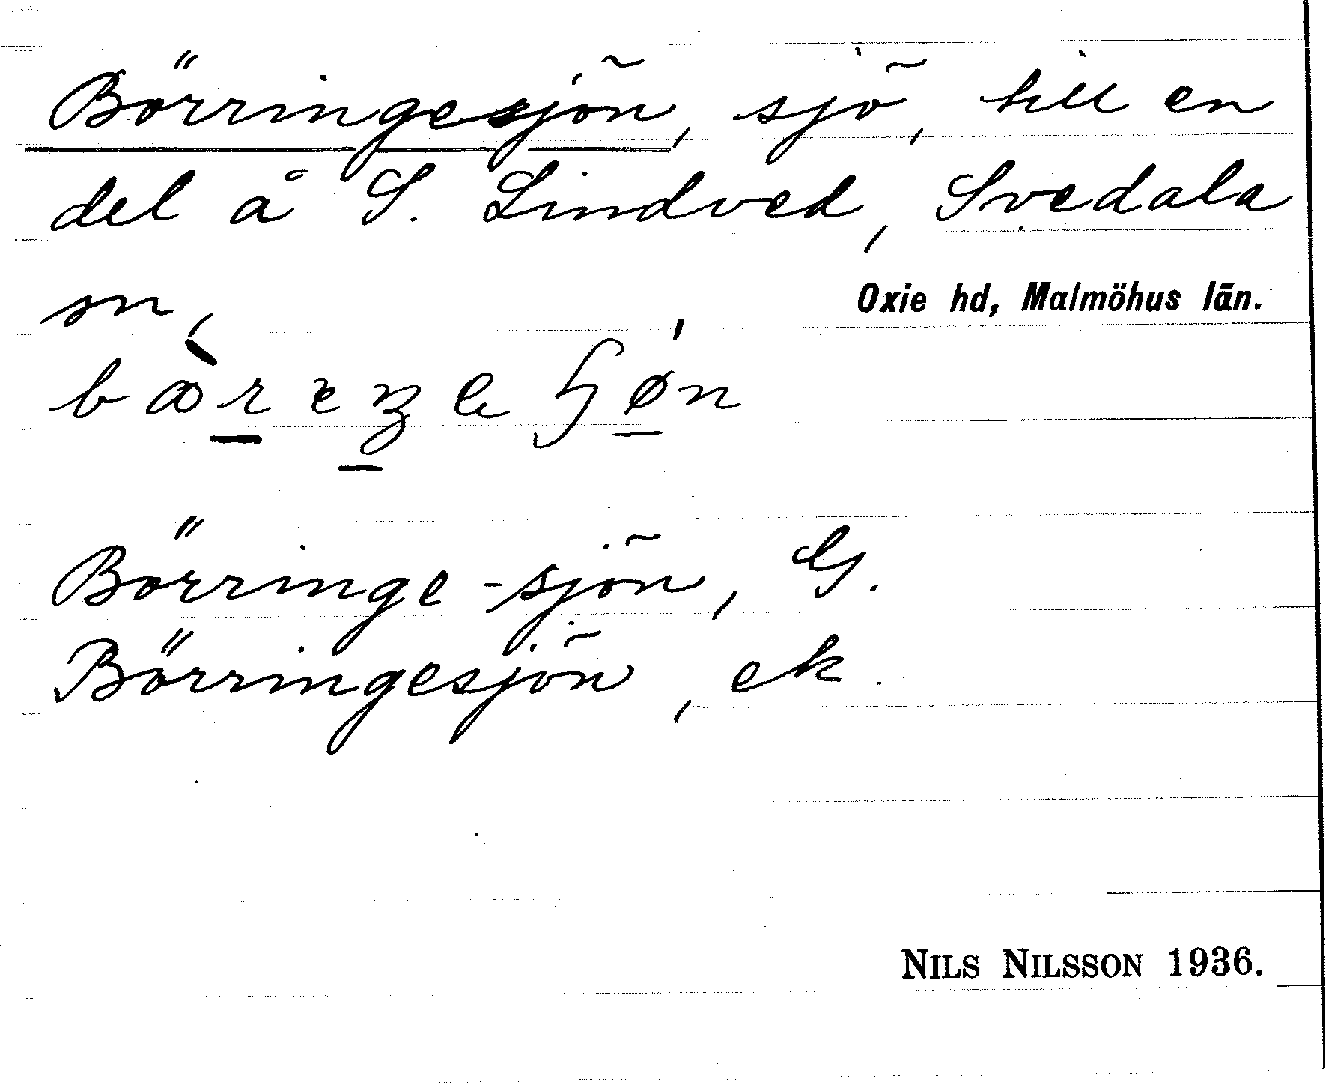 Börringesjön, sjö, till en
del å S. Lindved, Svedala
sn,
Oxie hd, Malmöhus län.
Börringe-sjön, G.
Börringesjön, ek.
NILS NILSSON 1936.